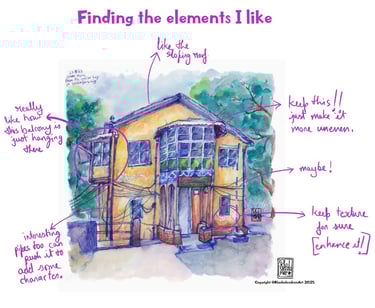 Finding the elements I like
like the
sloping roof
really
like how
this balcony is
just hanging
there
keep this!!
just make it
more uneven.
maybe!
keep texture
for sure
[enhance it!]
interesting
pipes too can
push it to
add some
character.